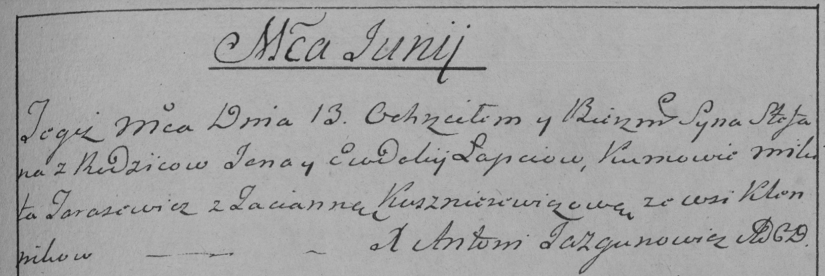 Mca Junij
Tegż mca Dnia 13. Ochrzciłem y Bierzm Syna Stefa
na z Rodzicow Jana y Ewdokij Łapciow, Kumowie Miki
ta Tarasewicz z Taciianną Kuszniesewiczową ze wsi Klen
nikow X Antoni Tazgunowicz